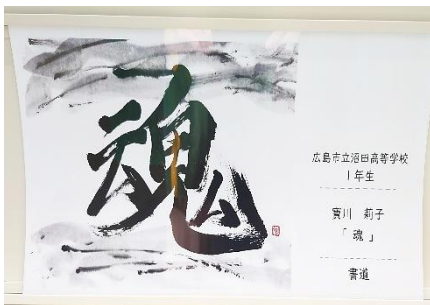 魂
広島市立沼田高等学校
1年生
寳川　莉子
「 魂 」
書道